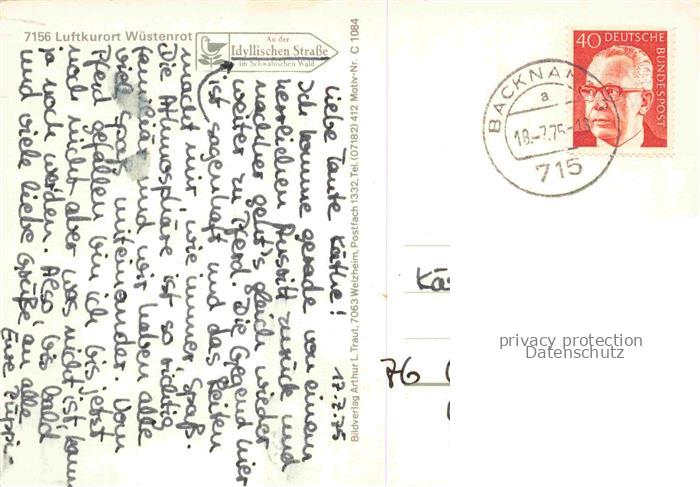 7156 Luftkurort Wüstenrot
An der
Idyllischen Straße
im Schwäbischen Wald
17.7.75
Liebe Tante Käthe!
Ich komme gerade von einem
herrlichen Ausritt zurück und
nachher geht's gleich wieder
weiter zu Pferd. Die Gegend hier
ist sagenhaft und das Reiten
macht mir, wie immer Spaß.
Die Athmosphäre ist so richtig
familiär und wir haben alle
viel Spaß miteinander. Vom
Pferd gefallen bin ich bis jetzt
noch nicht aber was nicht ist, kann
ja noch werden. Also, bis bald
und viele liebe Grüße an alle
Eure
Bildverlag Arthur L. Traut, 7063 Welzheim, Postfach 1332, Tel. (07182) 412 Motiv-Nr. C 1084
40 DEUTSCHE
BUNDESPOST
BACKNANG
a
18.-7.75-18
715
Kä
76
privacy protection
Datenschutz